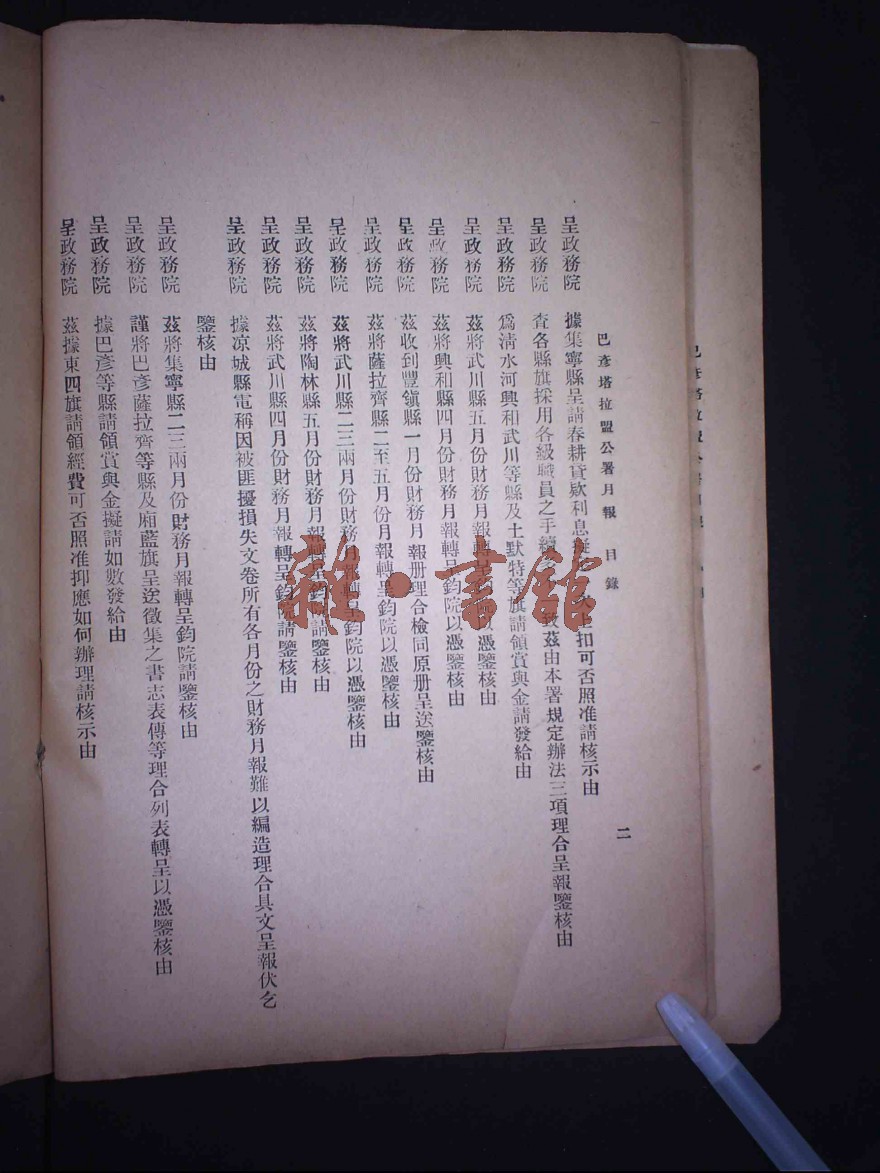 巴彥塔拉盟公署月報 目錄 二
呈政務院 據集寧縣呈請春耕貸欵利息 扣可否照准請核示由
呈政務院 査各縣旗採用各級職員之手續 致茲由本署規定辦法三項理合呈報鑒核由
呈政務院 爲清水河興和武川等縣及土默特等旗請領賞與金請發給由
呈政務院 茲將武川縣五月份財務月報轉呈鈞院以憑鑒核由
呈政務院 茲將興和縣四月份財務月報轉呈鈞院以憑鑒核由
呈政務院 茲收到豐鎭縣一月份財務月報册理合檢同原册呈送鑒核由
呈政務院 茲將薩拉齊縣二至五月份月報轉呈鈞院以憑鑒核由
呈政務院 茲將武川縣二三兩月份財務月報轉呈鈞院以憑鑒核由
呈政務院 茲將陶林縣五月份財務月報轉呈鈞院請鑒核由
呈政務院 茲將武川縣四月份財務月報轉呈鈞院請鑒核由
呈政務院 據凉城縣電稱因被匪擾損失文卷所有各月份之財務月報難以編造理合具文呈報伏乞
鑒核由
呈政務院 茲將集寧縣二三兩月份財務月報轉呈鈞院請鑒核由
呈政務院 謹將巴彥薩拉齊等縣及廂藍旗呈送徵集之書志表傳等理合列表轉呈以憑鑒核由
呈政務院 據巴彥等縣請領賞與金擬請如數發給由
呈政務院 茲據東四旗請領經費可否照准抑應如何辦理請核示由
雜·書館